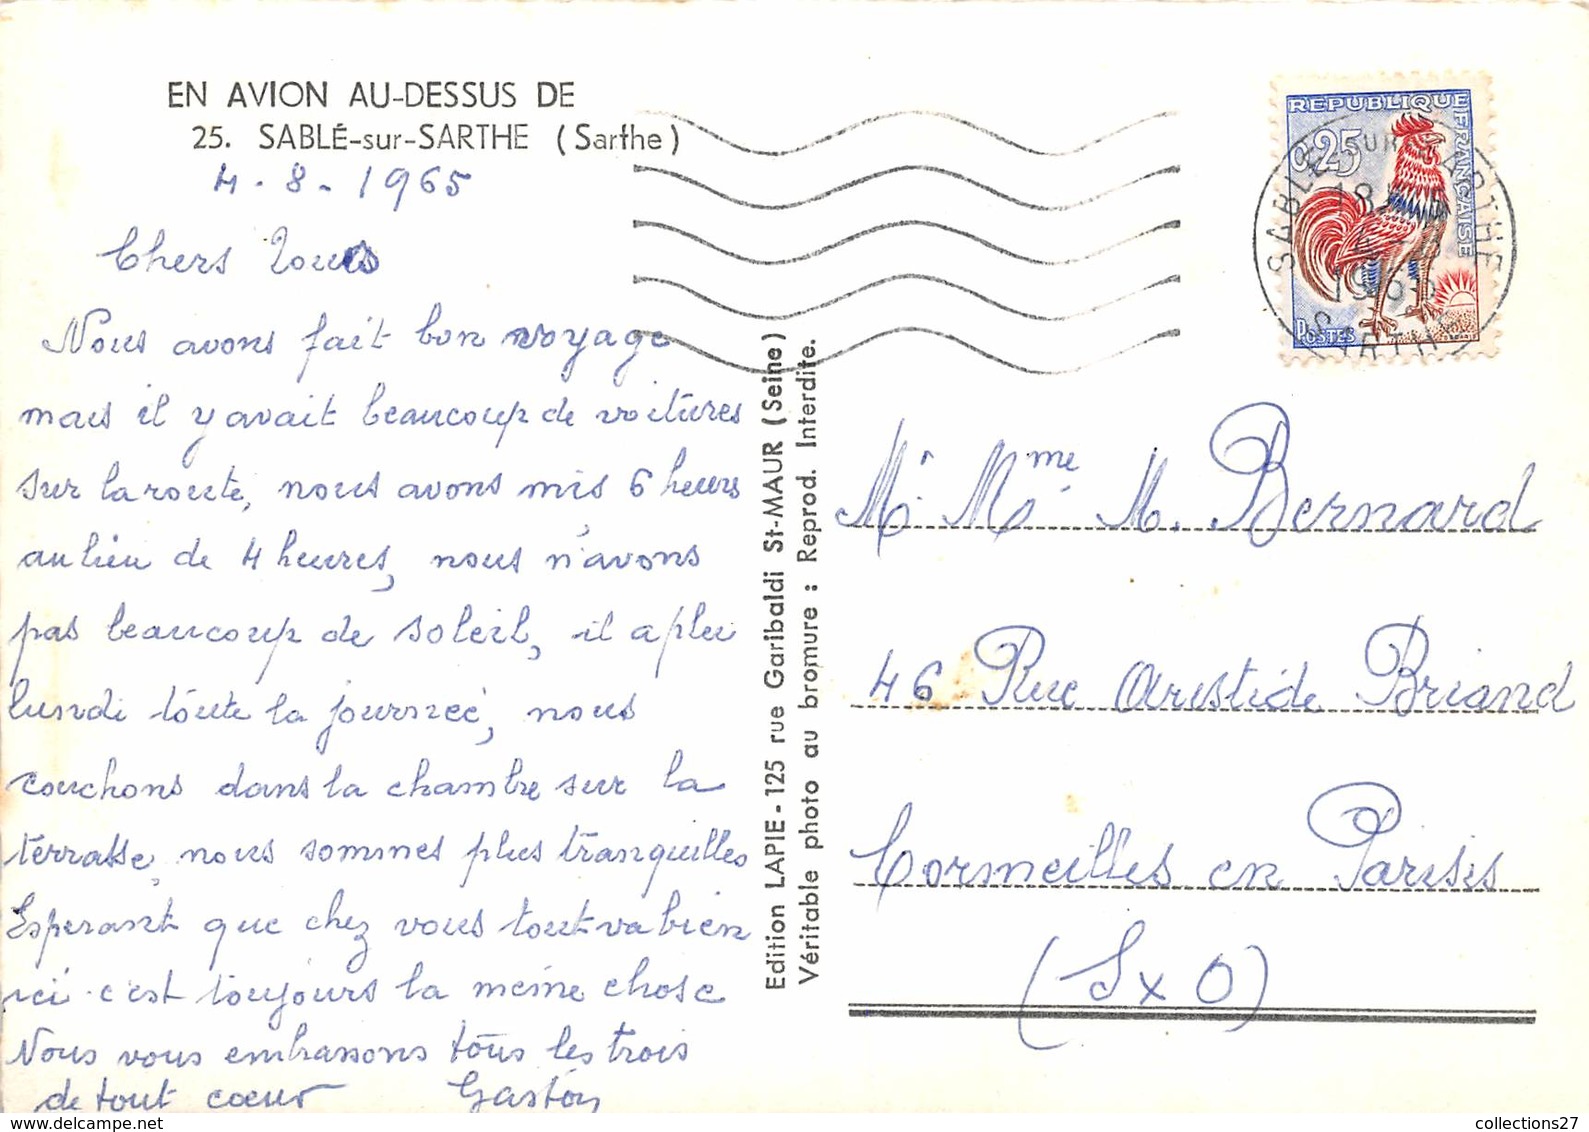 EN AVION AU-DESSUS DE
25. SABLÉ-sur-SARTHE (Sarthe)
4.8.1965
Chers Tous
Nous avons fait bon voyage
mais il y avait beaucoup de voitures
sur la route, nous avons mis 6 heures
au lieu de 4 heures, nous n'avons
pas beaucoup de soleil, il a plu
lundi toute la journée, nous
couchons dans la chambre sur la
terrasse, nous sommes plus tranquilles
Esperant que chez vous tout va bien
ici c'est toujours la même chose
Nous vous embrassons tous les trois
de tout coeur Gaston
Edition LAPIE - 125 rue Garibaldi St-MAUR (Seine)
Véritable photo au bromure : Reprod. Interdite.
REPUBLIQUE FRANÇAISE
0,25
POSTES
SABLE SUR SARTHE
18
1965
SARTHE
M. Mme M. Bernard
46 Rue Aristide Briand
Cormeilles en Parisis
(S x O)
collections27